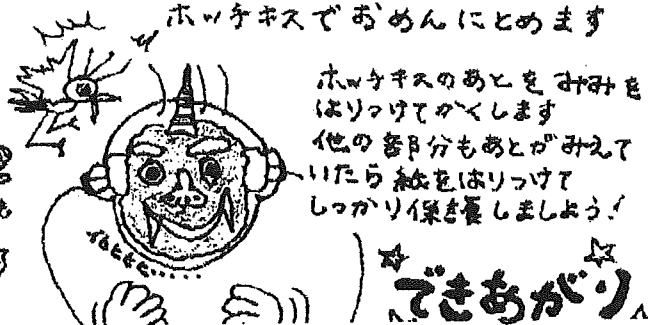 ホッチキスでおめんにとめます
ホッチキスのあとをみみを
はりつけてかくします
他の部分もあとがみえて
いたら紙をはりつけて
しっかり保護しましょう!
できあがり